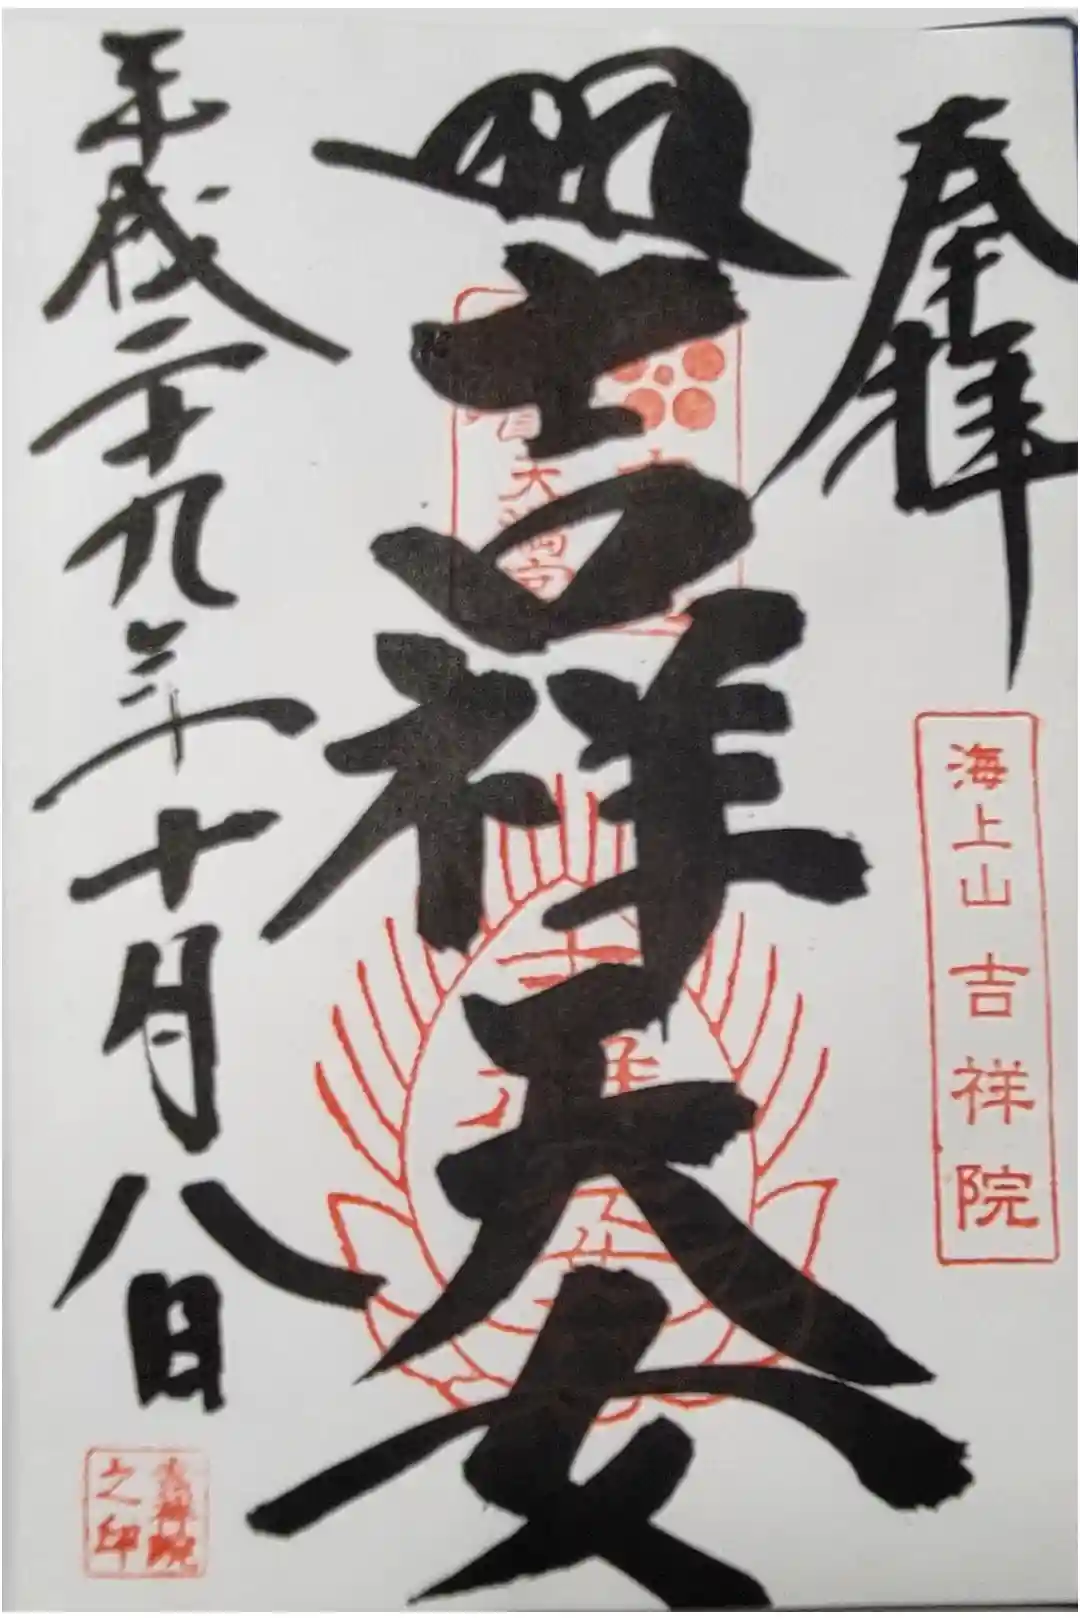 奉拝
海上山吉祥院
吉祥天女
平成二十九年十月八日
吉祥院
之印